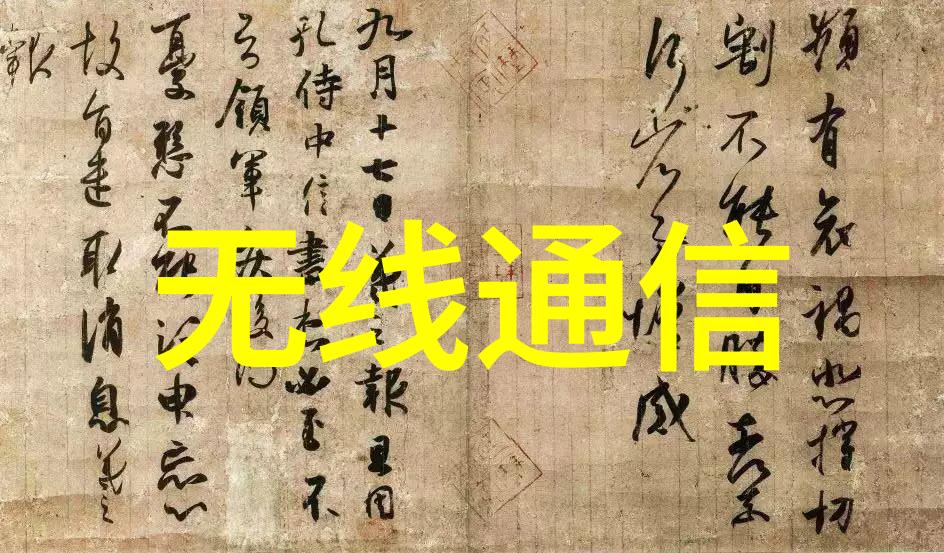 頻有哀禍悲摧切
割不能自勝奈何奈
何省慰增感
九月十七日羲之報且因
孔侍中信書想必至不
知領軍疾後問
憂懸不能須臾忘心
故旨遣取消息羲之
報
无线通信